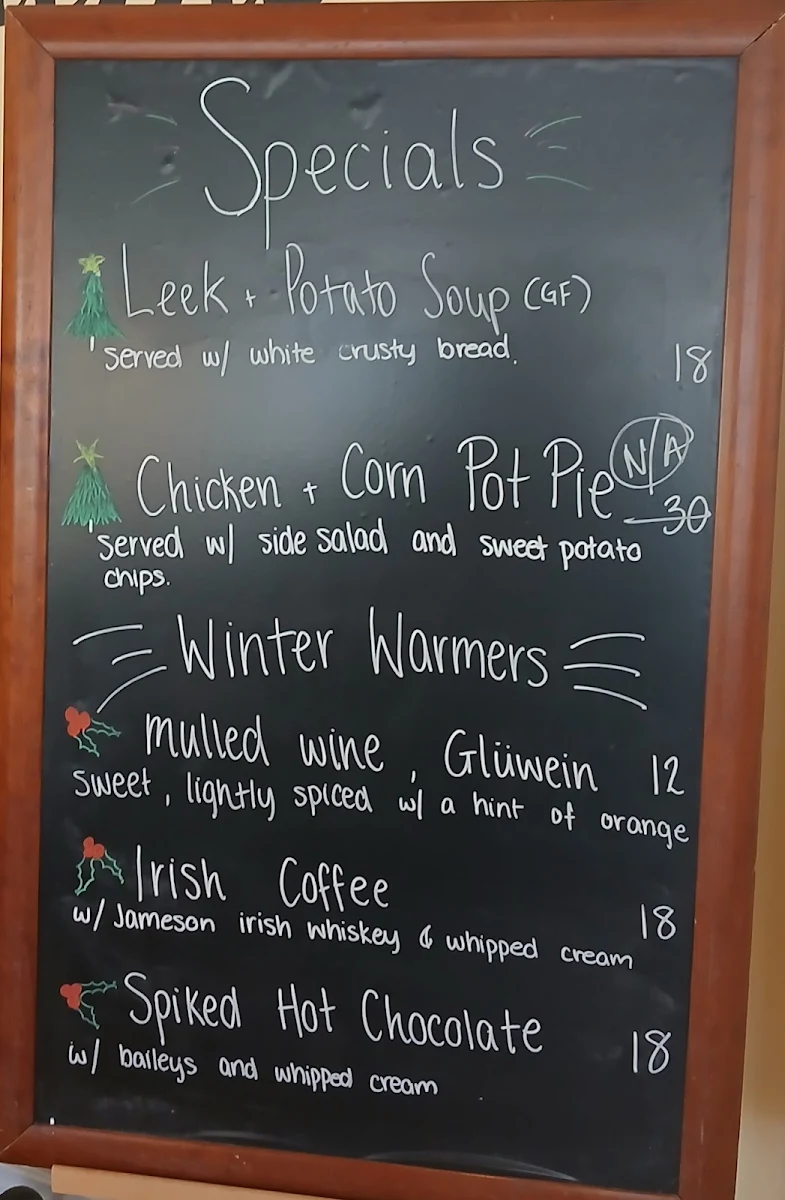 Specials
Leek + Potato Soup (GF)
served w/ white crusty bread.
18
Chicken + Corn Pot Pie N/A
30
served w/ side salad and sweet potato
chips.
Winter Warmers
mulled wine, Glüwein 12
sweet, lightly spiced w/ a hint of orange
Irish Coffee
18
w/ Jameson irish whiskey & whipped cream
Spiked Hot Chocolate
18
w/ baileys and whipped cream